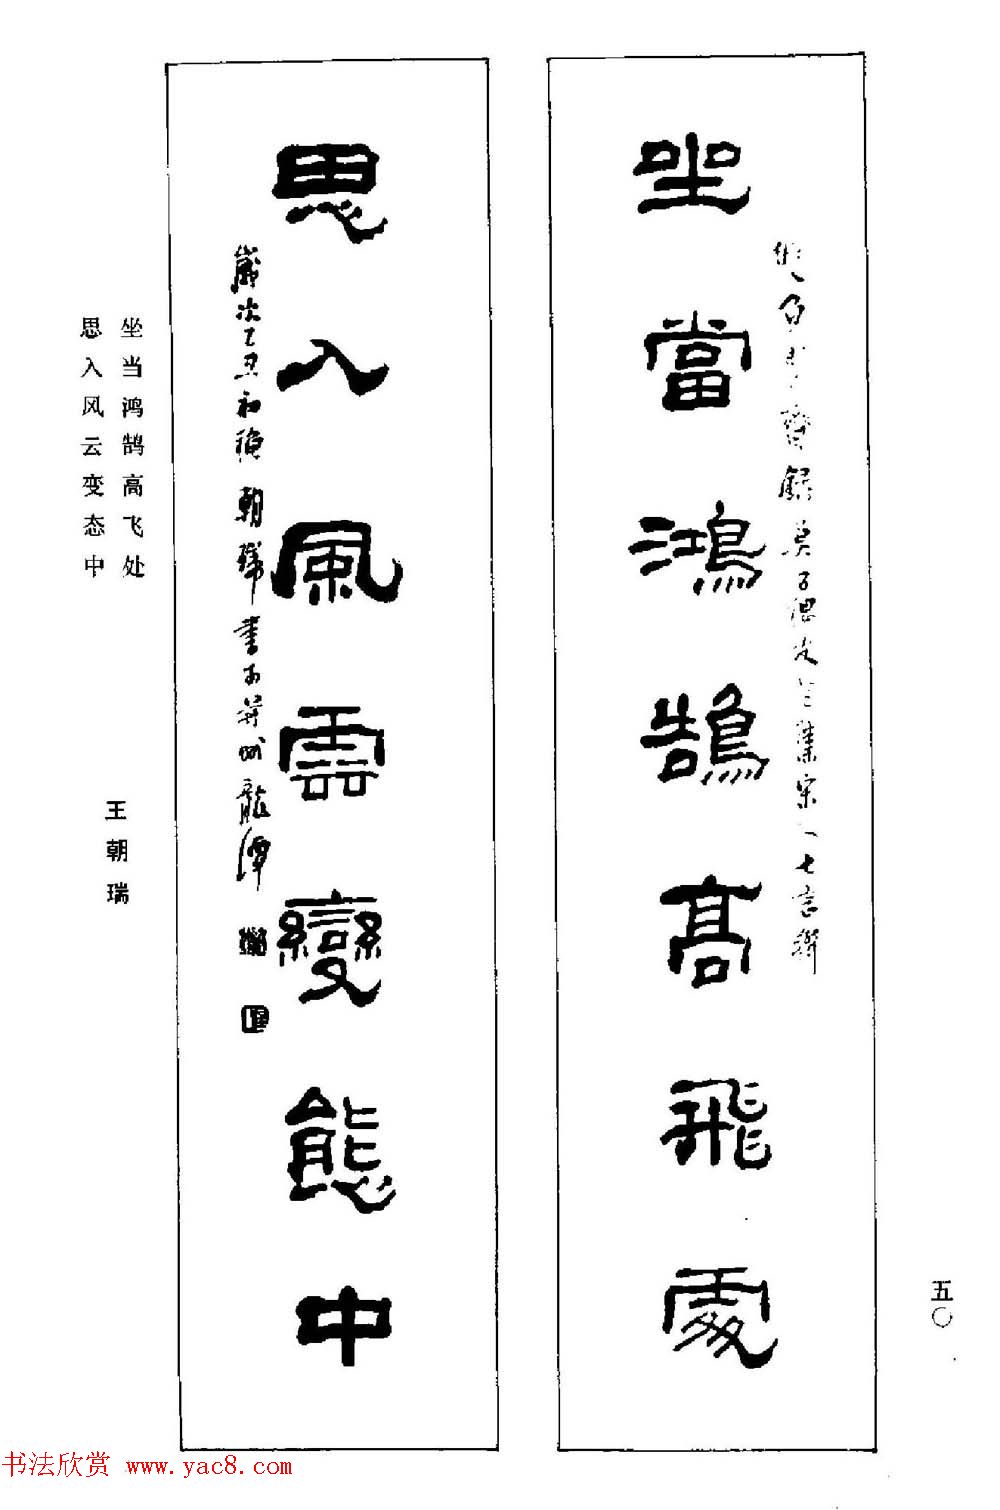 坐當鴻鵠高飛處
齋錄莫子偲
集宋
七言聯
思入風雲變態中
歲次乙丑初
朝瑞書於并州龍潭
坐当鸿鹄高飞处
思入风云变态中
王朝瑞
五〇
书法欣赏 www.yac8.com